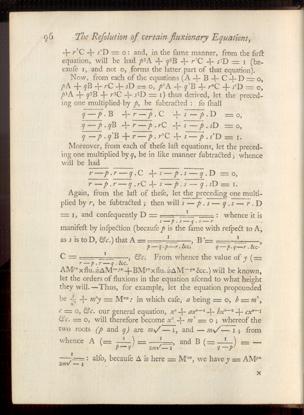 96 The Resolution of certain fluxionary Equations,
+ r²C + s²D = 0: and, in the same manner, from the first
equation, will be had p³A + q³B + r³C + s³D = 1 (be-
cause 1, and not 0, forms the latter part of that equation).
Now, from each of the equations (A + B + C + D = 0,
pA + qB + rC + sD = 0, p²A + q²B + r²C + s²D = 0,
p³A + q³B + r³C + s³D = 1) thus derived, let the preced-
ing one multiplied by p, be subtracted: so shall
q — p . B + r — p . C + s — p . D = 0,
q — p . qB + r — p . rC + s — p . sD = 0,
q — p . q²B + r — p . r²C + s — p . s²D = 1.
Moreover, from each of these last equations, let the preced-
ing one multiplied by q, be in like manner subtracted; whence
will be had
r — p . r — q . C + s — p . s — q . D = 0,
r — p . r — q . rC + s — p . s — q . sD = 1.
Again, from the last of these, let the preceding one multi-
plied by r, be subtracted; then will s — p . s — q . s — r . D
= 1, and consequently D = 1/(s — p . s — q . s — r) : whence it is
manifest by inspection (because p is the same with respect to A,
as s is to D, &c.) that A = 1/(p — q . p — r . &c.), B = 1/(q — p . q — r . &c.),
C = 1/(r — p . r — q . &c.), &c. From whence the value of y (=
will be known,
let the orders of fluxions in the equation ascend to what height
they will. — Thus, for example, let the equation propounded
in which case, a being = 0, b = m²,
c = 0, &c. our general equation,
&c. = 0, will therefore become x² + m² = 0; whereof the
two roots (p and q) are m√—1, and — m√—1; from
whence A (= 1/(p — q)) = 1/(2m√—1), and B (= 1/(q — p)) = —
1/(2m√—1): also, because Δ is here = we have y =
x